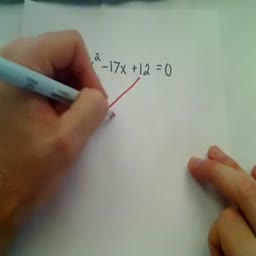 ² -17x +12 = 0